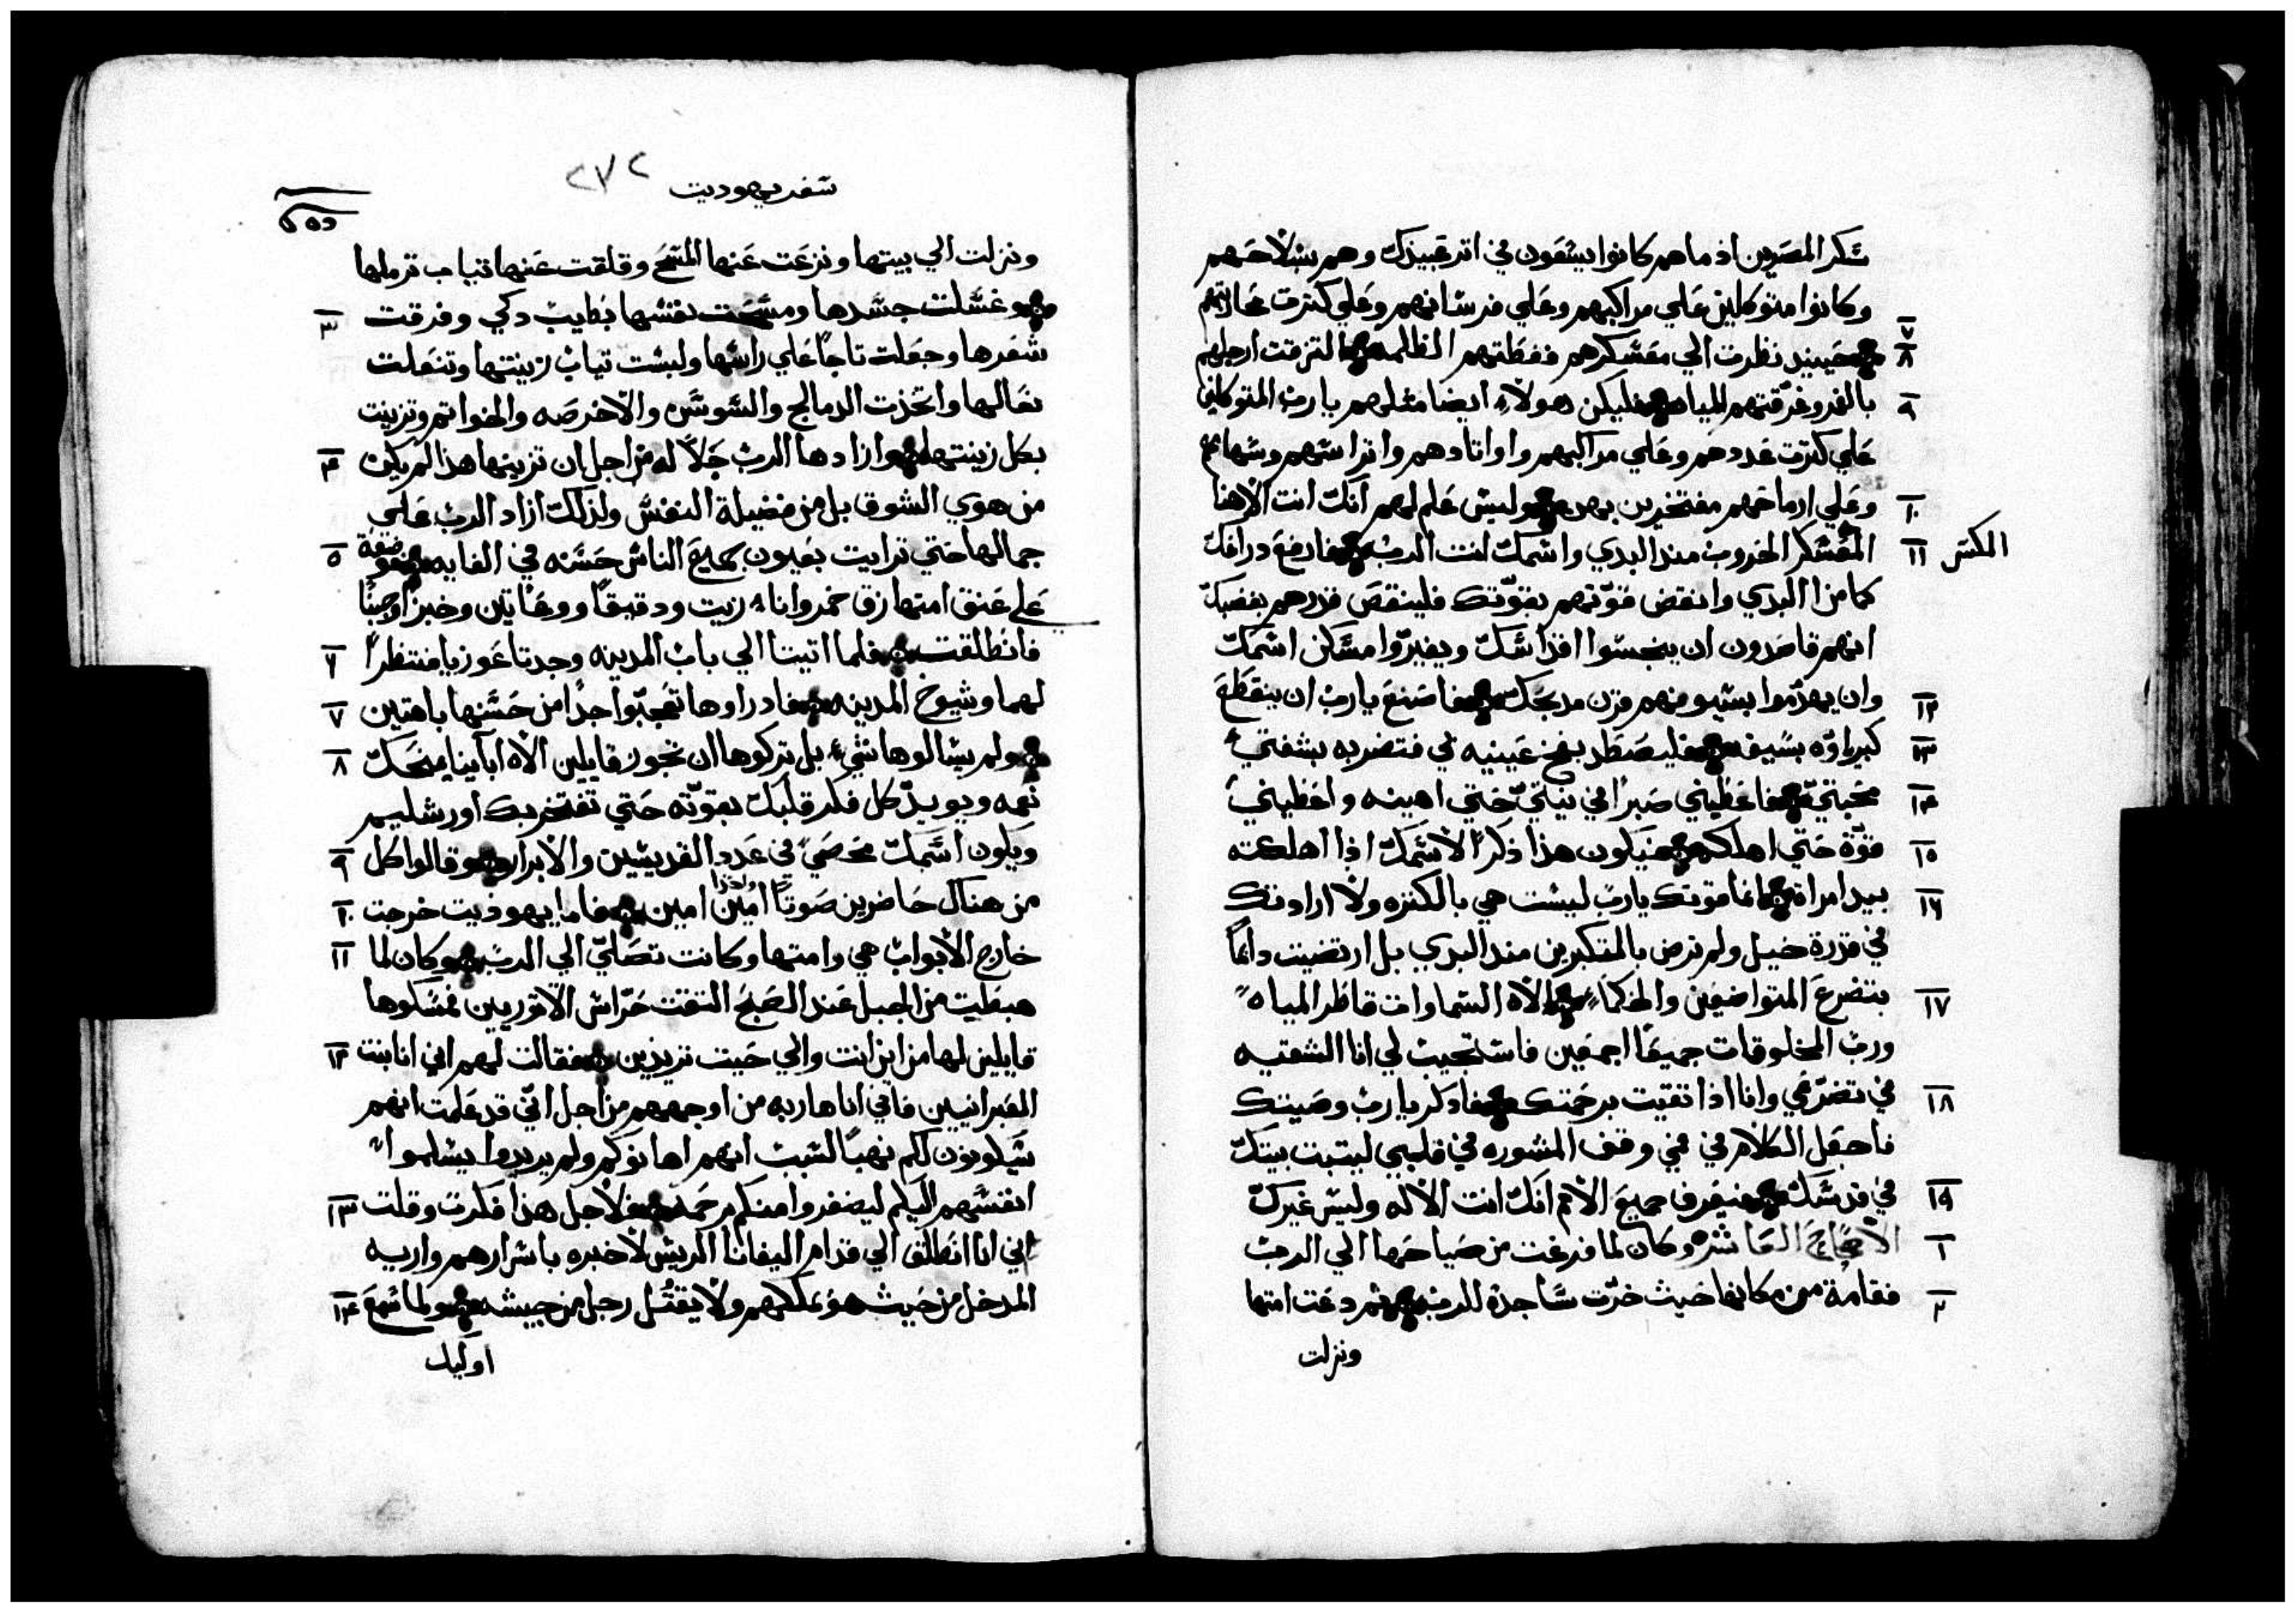 شكر المصريين اذ ماهم كانوا يسعون في اثر عبيدك وهم بسلاحهم
وكانوا متوكلين علي مراكبهم وعلي فرسانهم وعلي كترت محاربتهم
٧
٨ حينيد نظرت الي معسكرهم فغطتهم الظلمه التزقت ارجلهم
٩ بالغمر وغرقتهم المياه فليكن هولاء ايضا مثلهم يا رب المتوكلين
علي كترت عددهم وعلي مراكبهم واوتادهم واتراسهم وسهامهم
١٠ وعلي ارماحهم مفتخرين بهم وليس علم لهم انك انت الاهنا
المكسر ١١ المعسكر الحروب منذ البدي واسمك انت الرب فارفع دراعك
كما من البدي وانقض قوتهم بقوتك فلينقص قدرهم بغضبك
انهم قاصدون ان ينجسوا اقداسك ويغيروا مسكن اسمك
١٢ وان يهدموا بسيوفهم قرن مدبحك فاصنع يا رب ان ينقطع
١٣ كبرياوه بسيفه فليصطد بفخ عينيه في فتضربه بشفتي
١٤ محبتي فاعطيني صبرا في نيتي حتي اهينه واعطيني
١٥ قوة حتي اهلكه فيكون هذا ذكرا لاسمك اذا اهلكته
١٦ بيد امراة انما قوتك يا رب ليست هي بالكتره ولا ارادتك
في قدرة خيل ولم ترض بالمتكبرين منذ البدي بل ارتضيت دائما
١٧ بتضرع المتواضعين والحكماء الاه السماوات قاطر المياه
ورب المخلوقات جميعا اجمعين فاستجيب لي انا الشقيه
١٨ في تضرعي وانا اذا تقيت برحمتك فادكر يا رب وصيتك
فاجعل الكلام في فمي وقف المشوره في قلبي ليتبت بيتك
١٩ في قدسك فيعرف جميع الامم انك انت الاله وليس غيرك
١ الاصحاح العاشر وكان لما فرغت من صياحها الي الرب
٢ فقامة من مكانها حيث خرت ساجدة للرب ثم دعت امتها
ونزلت
سفر يهوديت ٢٧٢
ونزلت الي بيتها ونزعت عنها المسح وقلقت عنها تياب ترملها
٣ وغسلت جسدها ومسحت نفسها بطايب دكي وفرقت
شعرها وجعلت تاجا علي راسها ولبست تياب زينتها وتنعلت
نعالها واتخذت الدمالج والسوسن والاخرصه والخواتم وتزينت
٤ بكل زينتها وازادها الرب جلالا له من اجل ان تزينها هذا لم يكن
من هوي الشوق بل من فضيلة النفس ولذلك ازاد الرب علي
٥ جمالها حتي ترايت بعيون جميع الناس حسنه في الغايه فوضعة
علي عنق امتها زق خمر واناء زيت ودقيقا ووعاتين وخبزا وجبنا
٦ فانطلقت فلما اتيتا الي باب المدينه وجدتا عوزيا منتظرا
٧ لهما وشيوخ المدينه فاد راوها تعجبوا جدا من حسنها باهتين
٨ ولم يسالوها شيء بل تركوها ان تجوز قايلين الاه اباينا يمنحك
نعمه ويويد كل فكر قلبك بقوته حتي تفتخر بك اورشليم
٩ ويكون اسمك محصي في عدد القديسين والابرار وقالوا كل
١٠ من هناك حاضرين صوتا واحدا امين امين فاما يهوديت خرجت
١١ خارج الابواب هي وامتها وكانت تصلي الي الرب وكان لما
هبطت من الجبل عند الصبح التقت حراس الاتوريين فمسكوها
١٢ قايلين لها من اين انت والي حيت تريدين فقالت لهم اني انا بنت
العبرانيين فاني انا هاربه من اوجههم من اجل اني قد علمت انهم
سيكونون لكم نهبا لسبب انهم اهانوكم ولم يريدوا يسلموا
١٣ انفسهم اليكم ليضفروا منكم برحمه فلاجل هذا فكرت وقلت
اني انا انطلق الي قدام اليفانا الريس لاخبره باسرارهم واريه
١٤ المدخل من حيث هو عكلهم ولا يقتل رجل من جيشه ولما سمع
اوليك